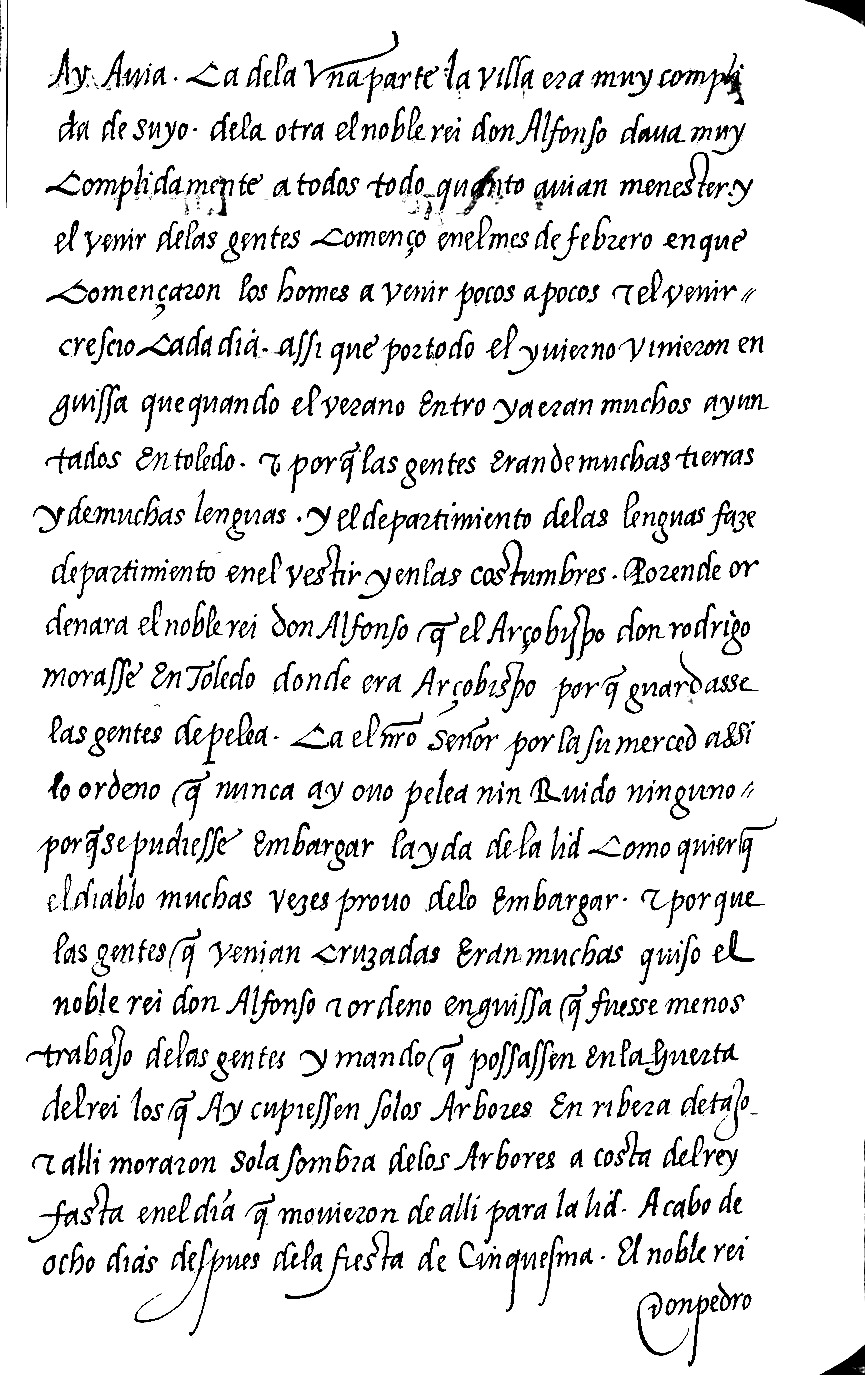 Ay Auia. Ca dela Vna parte la villa era muy compli
da de suyo. dela otra el noble rei don Alfonso daua muy
Complidamente a todos todo quanto auian menester. y
el venir delas gentes Començo enel mes de febrero en que
Començaron los homes a venir pocos a pocos τ el venir
crescio Cada diá. assi que por todo el yuierno vinieron en
guissa que quando el verano Entro ya eran muchos ayun
tados En toledo. τ porq̃ las gentes Eran de muchas tierras
y de muchas lenguas. y el departimiento delas lenguas faze
departimiento enel vestir y en las costumbres. Porende or
denara el noble rei don Alfonso q̃ el Arçobispo don rodrigo
morasse En Toledo donde era Arçobispo porq̃ guardasse
las gentes de pelea. Ca el nr̃o Señor por la su merced assi
lo ordeno q̃ nunca ay ouo pelea nin Ruido ninguno
porq̃ se pudiesse Embargar la yda de la lid Como quierq̃
el diablo muchas vezes prouo delo Embargar. τ por que
las gentes q̃ venian Cruzadas Eran muchas quiso el
noble rei don Alfonso τ ordeno enguissa q̃ fuesse menos
trabajo delas gentes y mando q̃ possassen En la huerta
del rei los q̃ Ay cupiessen solos Arbores En ribera de tajo
τ alli moraron Sola sombra delos Arbores a costa del rey
fasta enel día q̃ mouieron de alli para la lid. Acabo de
ocho diás despues dela fiesta de Cinquesma. El noble rei
don pedro